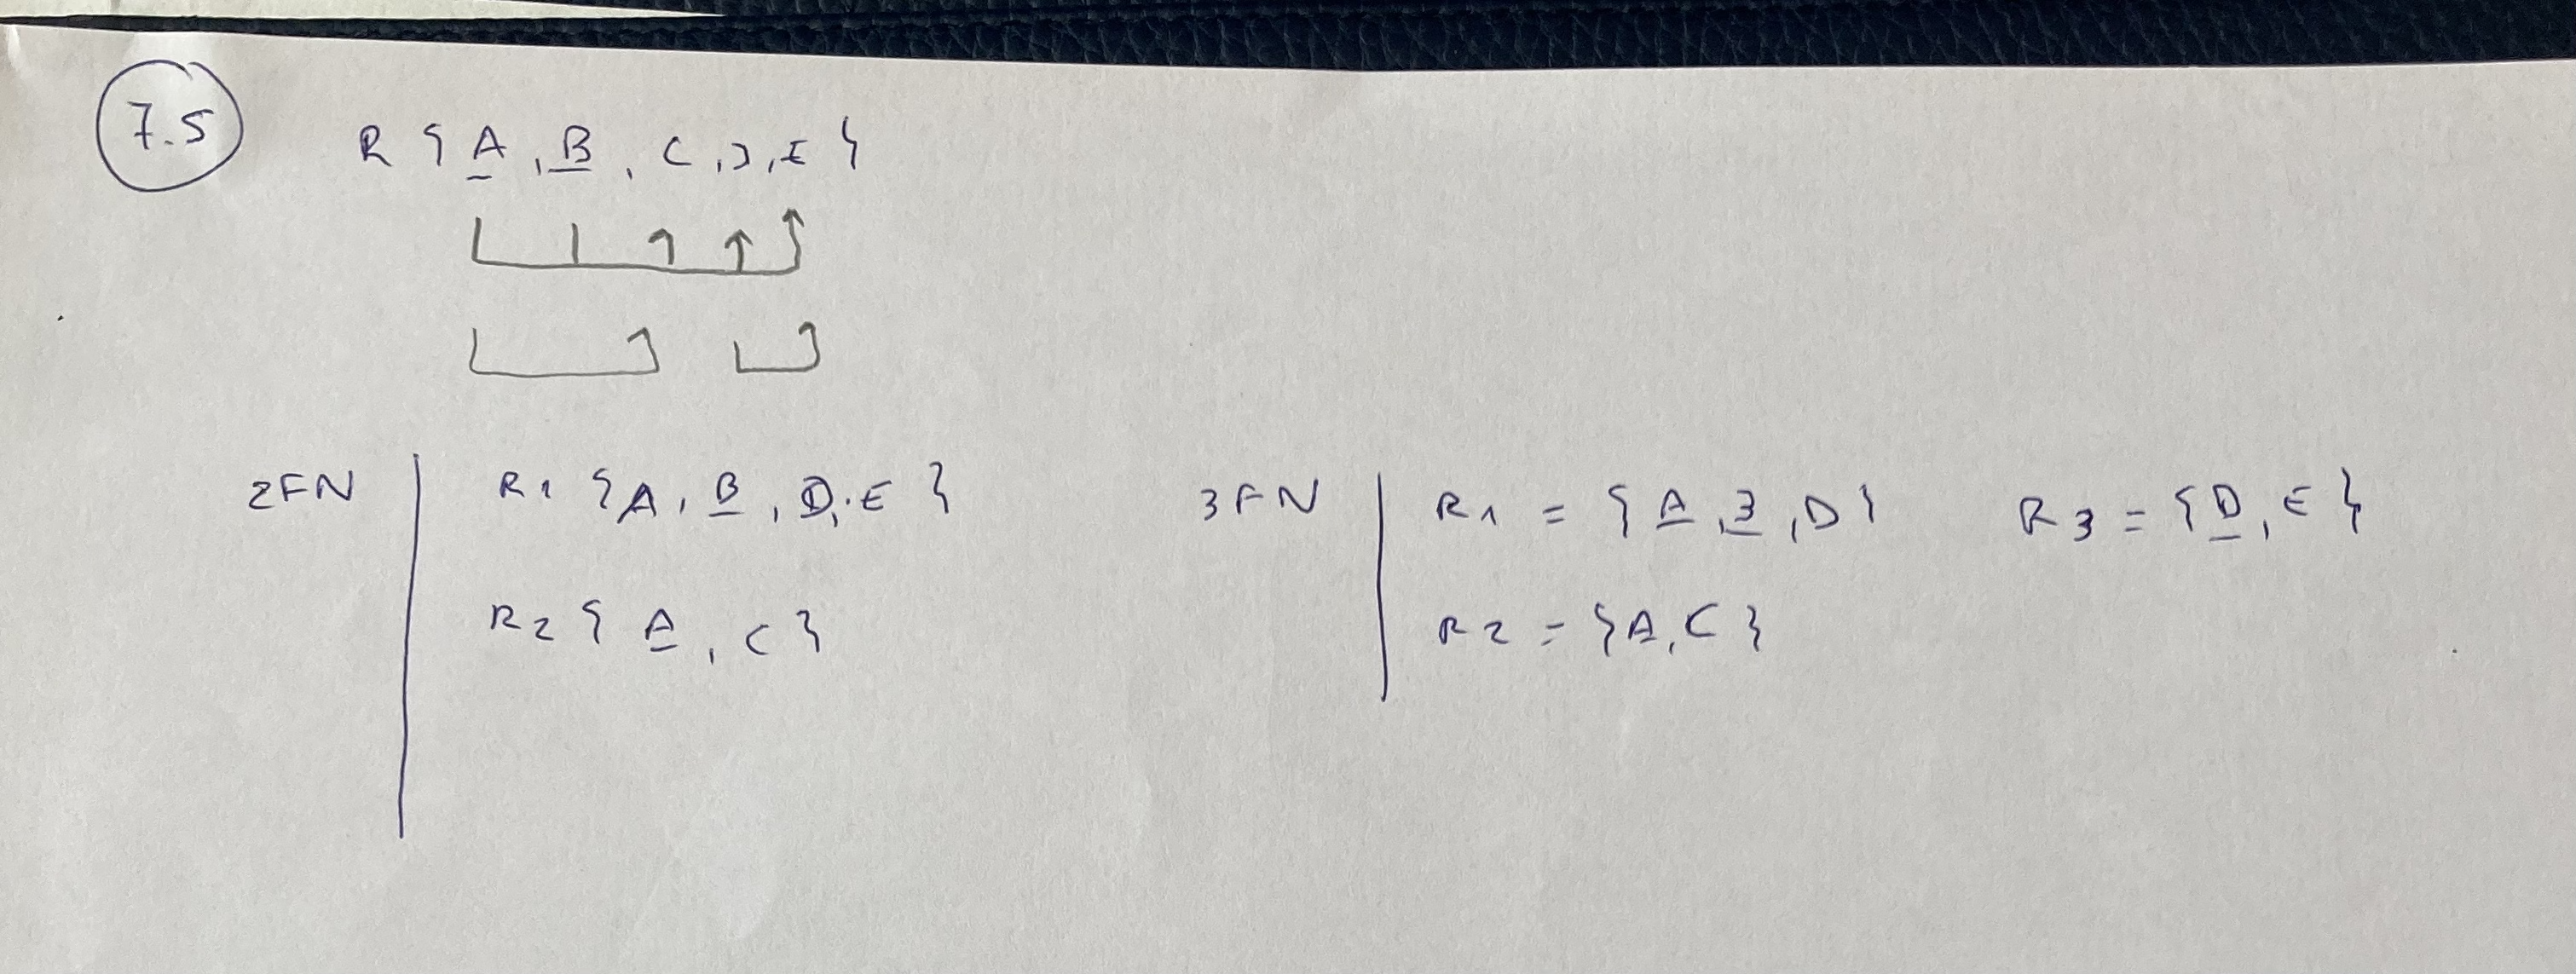 7.5 R { A, B, C, D, E }
2FN R1 { A, B, D, E }
R2 { A, C }
3FN R1 = { A, B, D } R3 = { D, E }
R2 = { A, C }